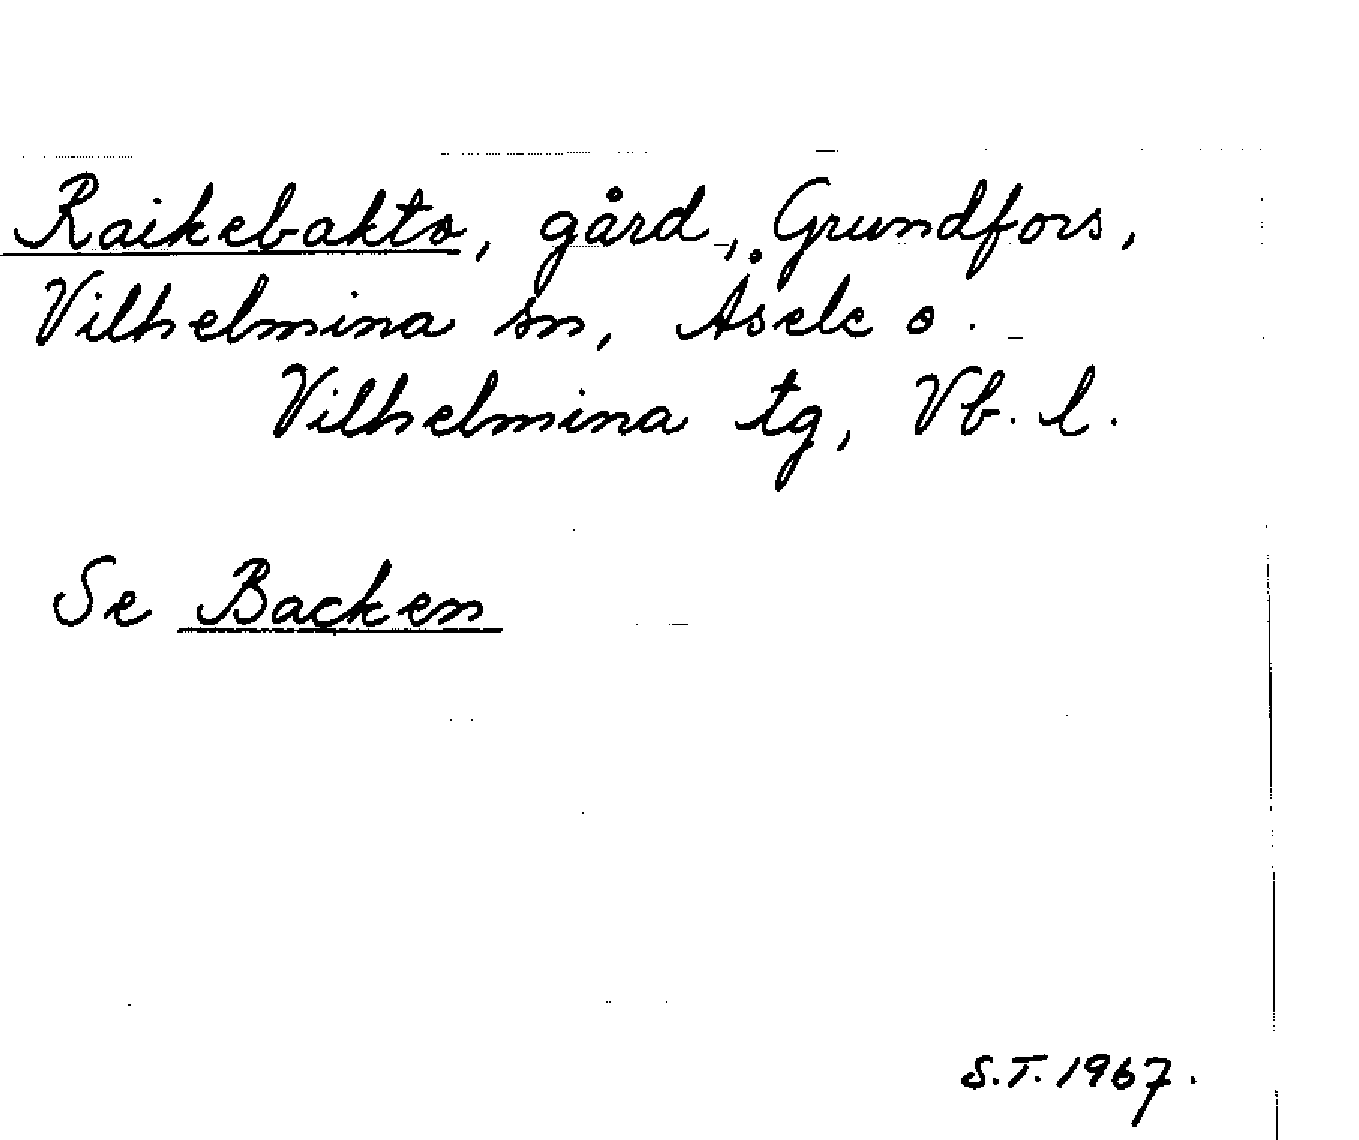 Raikebakto, gård, Grundfors,
Vilhelmina sn, Åsele o.
Vilhelmina tg, Vb. l.
Se Backen
S.T. 1967.